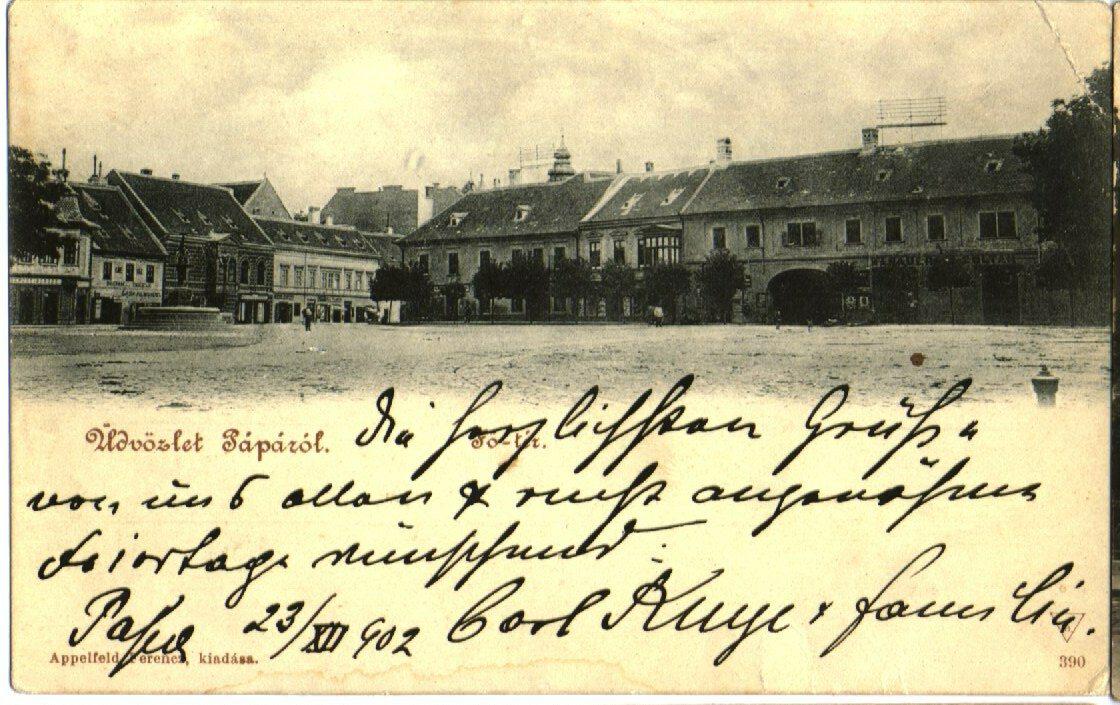 Üdvözlet Pápáról.
Fő-tér.
Die herzlichsten Grüße
von uns allen & recht angenehme
Feiertage wünschend
23/XII 902 Carl & Familie.
Appelfeld Ferencz, kiadása.
390